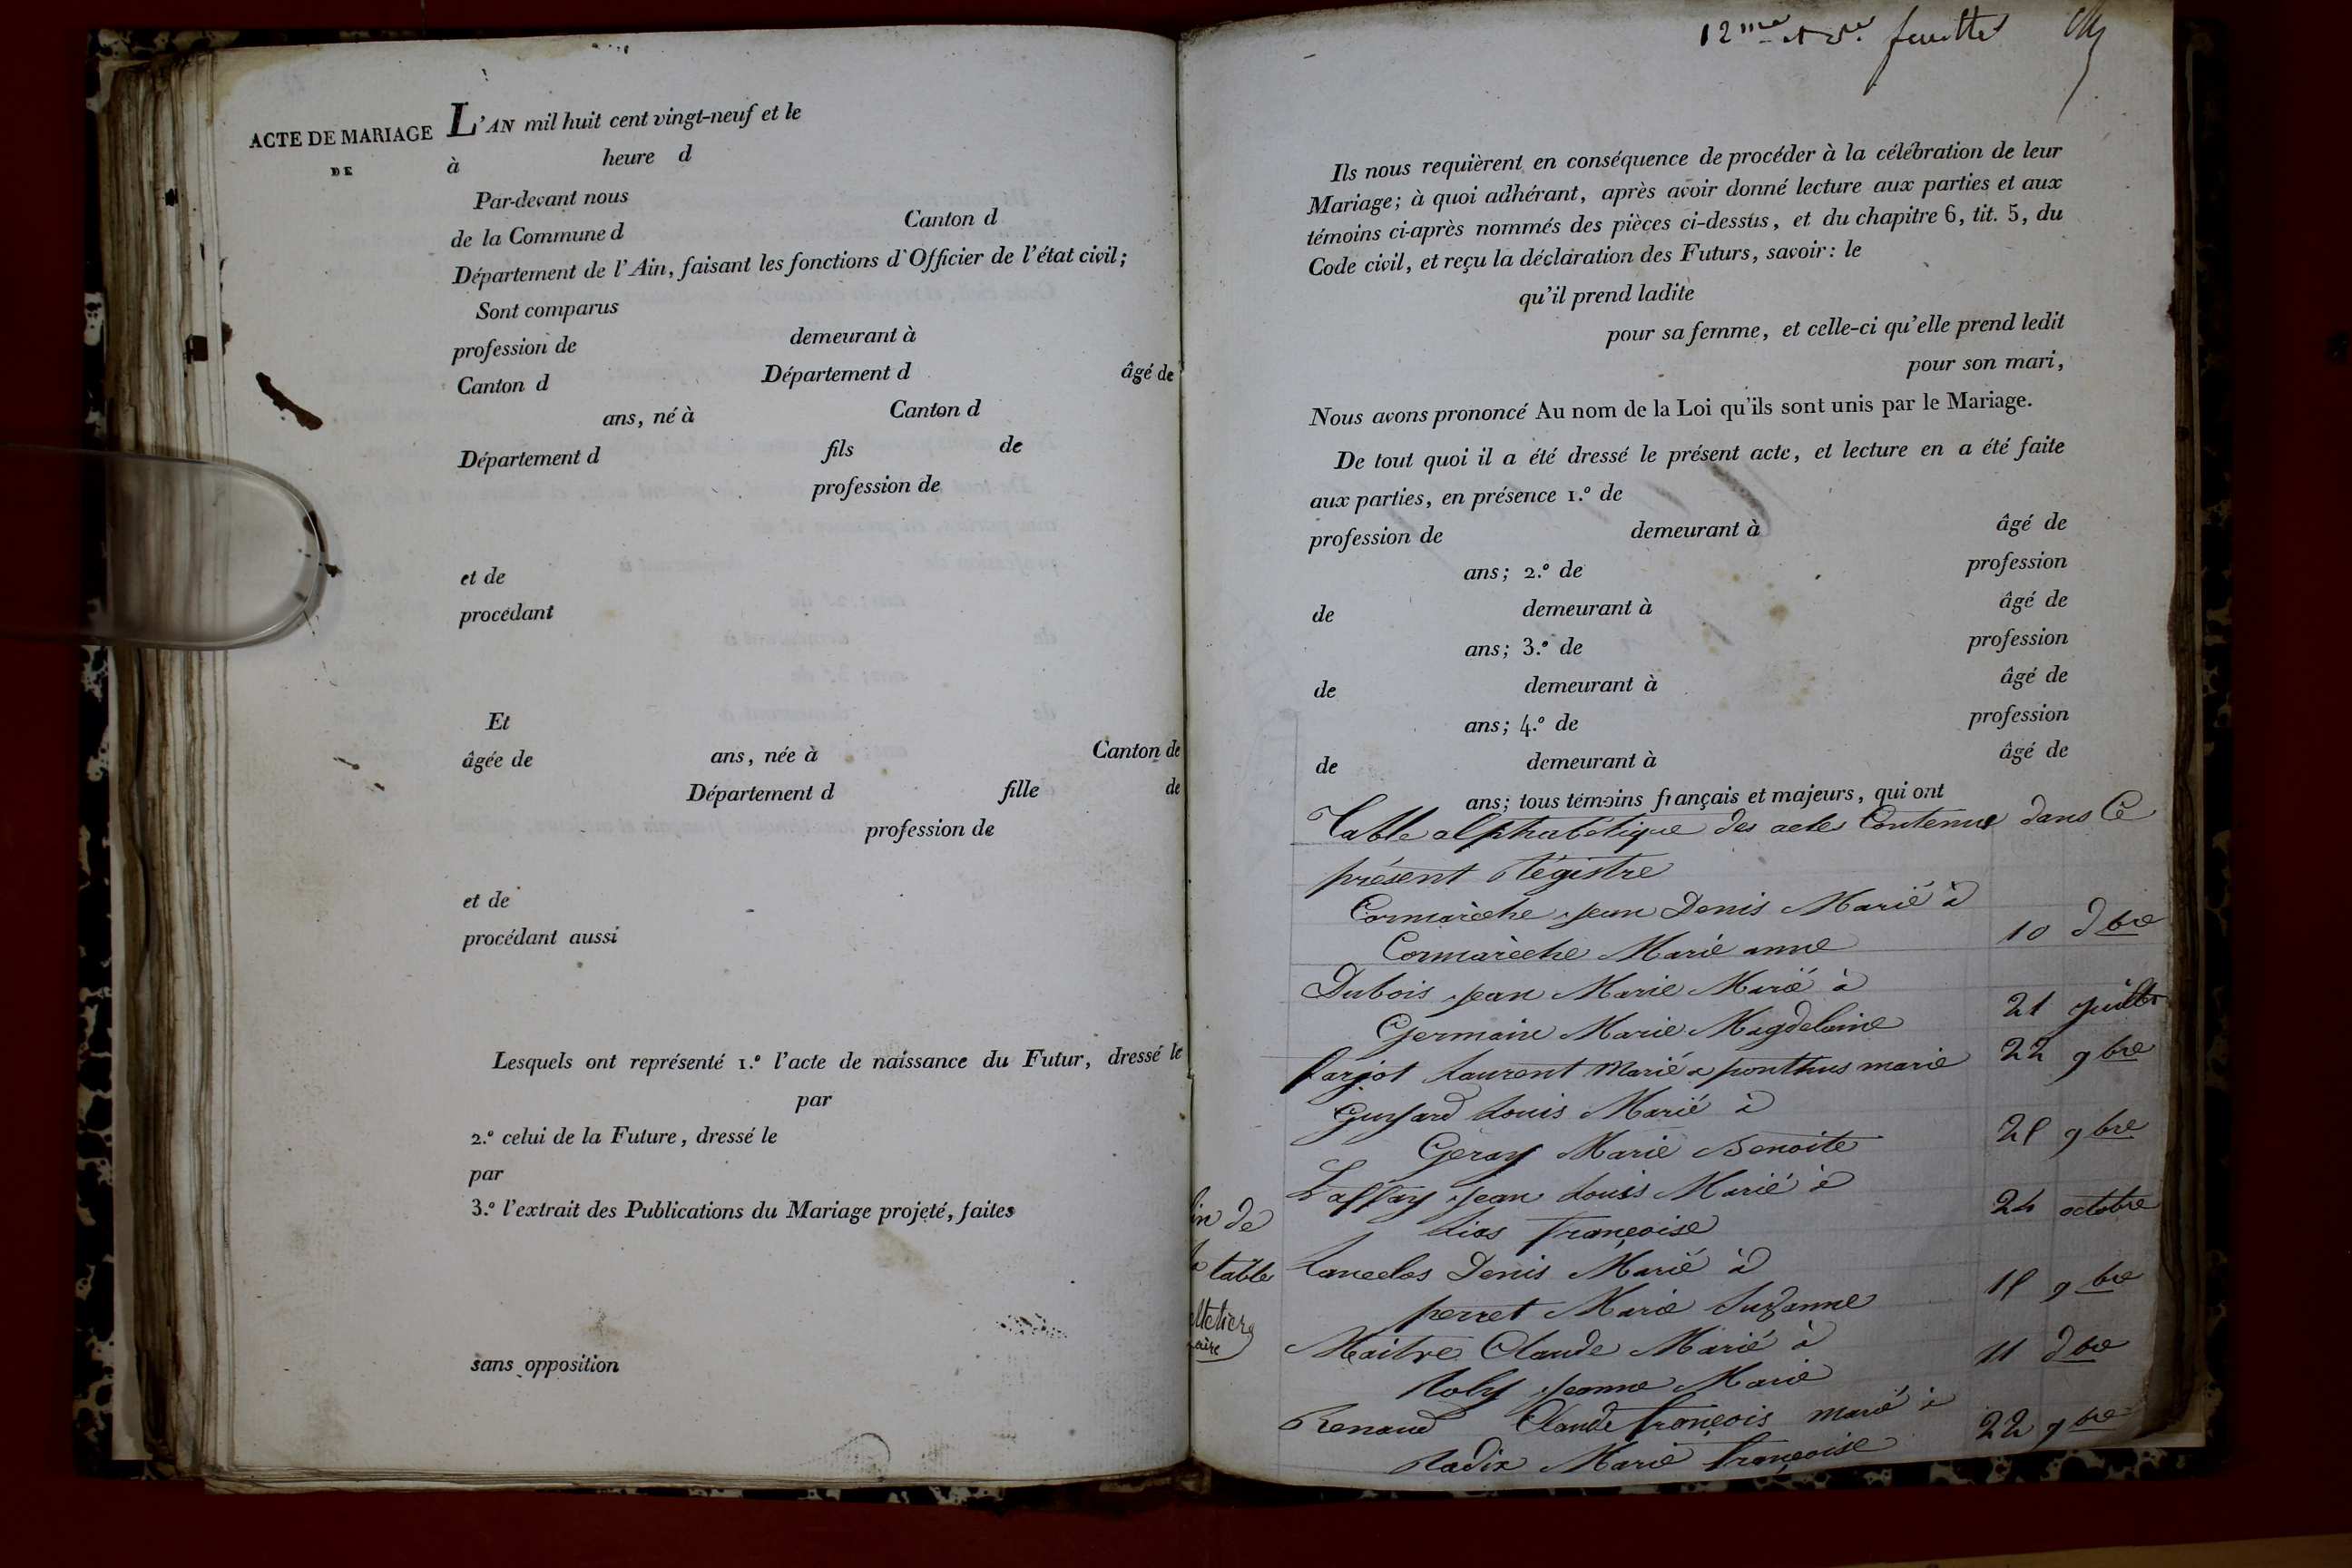 ACTE DE MARIAGE
DE
L'AN mil huit cent vingt-neuf et le
à heure d
Par-devant nous
de la Commune d Canton d
Département de l'Ain, faisant les fonctions d'Officier de l'état civil;
Sont comparus
profession de demeurant à
Canton d Département d âgé de
ans, né à Canton d
Département d fils de
profession de
et de
procédant
Et
âgée de ans, née à Canton de
Département d fille de
profession de
et de
procédant aussi
Lesquels ont représenté 1.º l'acte de naissance du Futur, dressé le
par
2.º celui de la Future, dressé le
par
3.º l'extrait des Publications du Mariage projeté, faites
sans opposition
12me et feuille
Ils nous requièrent en conséquence de procéder à la célébration de leur
Mariage; à quoi adhérant, après avoir donné lecture aux parties et aux
témoins ci-après nommés des pièces ci-dessus, et du chapitre 6, tit. 5, du
Code civil, et reçu la déclaration des Futurs, savoir: le
qu'il prend ladite
pour sa femme, et celle-ci qu'elle prend ledit
pour son mari,
Nous avons prononcé Au nom de la Loi qu'ils sont unis par le Mariage.
De tout quoi il a été dressé le présent acte, et lecture en a été faite
aux parties, en présence 1.º de
profession de demeurant à âgé de
ans; 2.º de profession
de demeurant à âgé de
ans; 3.º de profession
de demeurant à âgé de
ans; 4.º de profession
de demeurant à âgé de
ans; tous témoins français et majeurs, qui ont
Table alphabétique des actes Contenus dans Ce
présent Régistre
Cormarèche Jean Denis Marié à
Cormarèche Marie anne 10 dbre
Dubois Jean Marie Marié à
Germain Marie Magdelaine 21 juillet
fargot Laurent Marié a ponthus marie 22 9bre
Louis Marié à
Geray Marie Benoite 25 9bre
Jean Louis Marié à
Lias françoise 24 octobre
Lancelos Denis Marié à
perret Marie Suzanne 15 9bre
Maitre Claude Marié à
Roly Jeanne Marie 11 dbre
Renaud Claude françois marié à
Nadix Marie françoise 22 9bre
fin de
la table